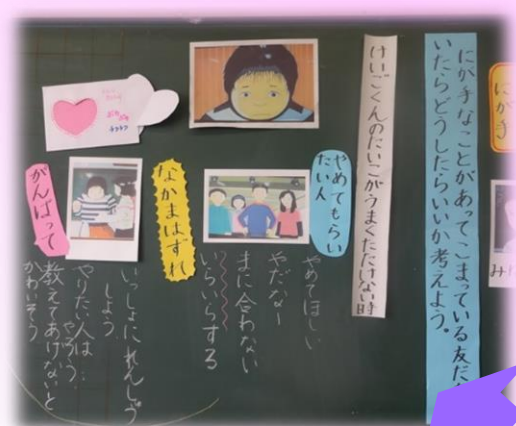 にが手
み
にが手なことがあってこまっている友だち
いたらどうしたらいいか考えよう。
けいごくんのたいこがうまくたたけない時
やめてもらい
たい人
やめてほしい
やだなー
まに合わない
いらいらする
なかまはずれ
がんばって
いっしょにれんしゅう
しよう
やりたい人は…
やろう
教えてあげないと
かわいそう